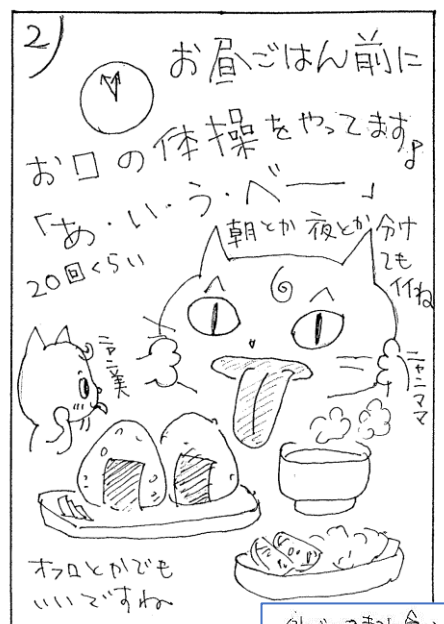 2)
お昼ごはん前に
お口の体操をやってます♪
「あ・い・う・べー」
20回くらい
朝とか夜とか分け
ても
イイね
ニャン美
ニャンママ
オフロとかでも
いいですね